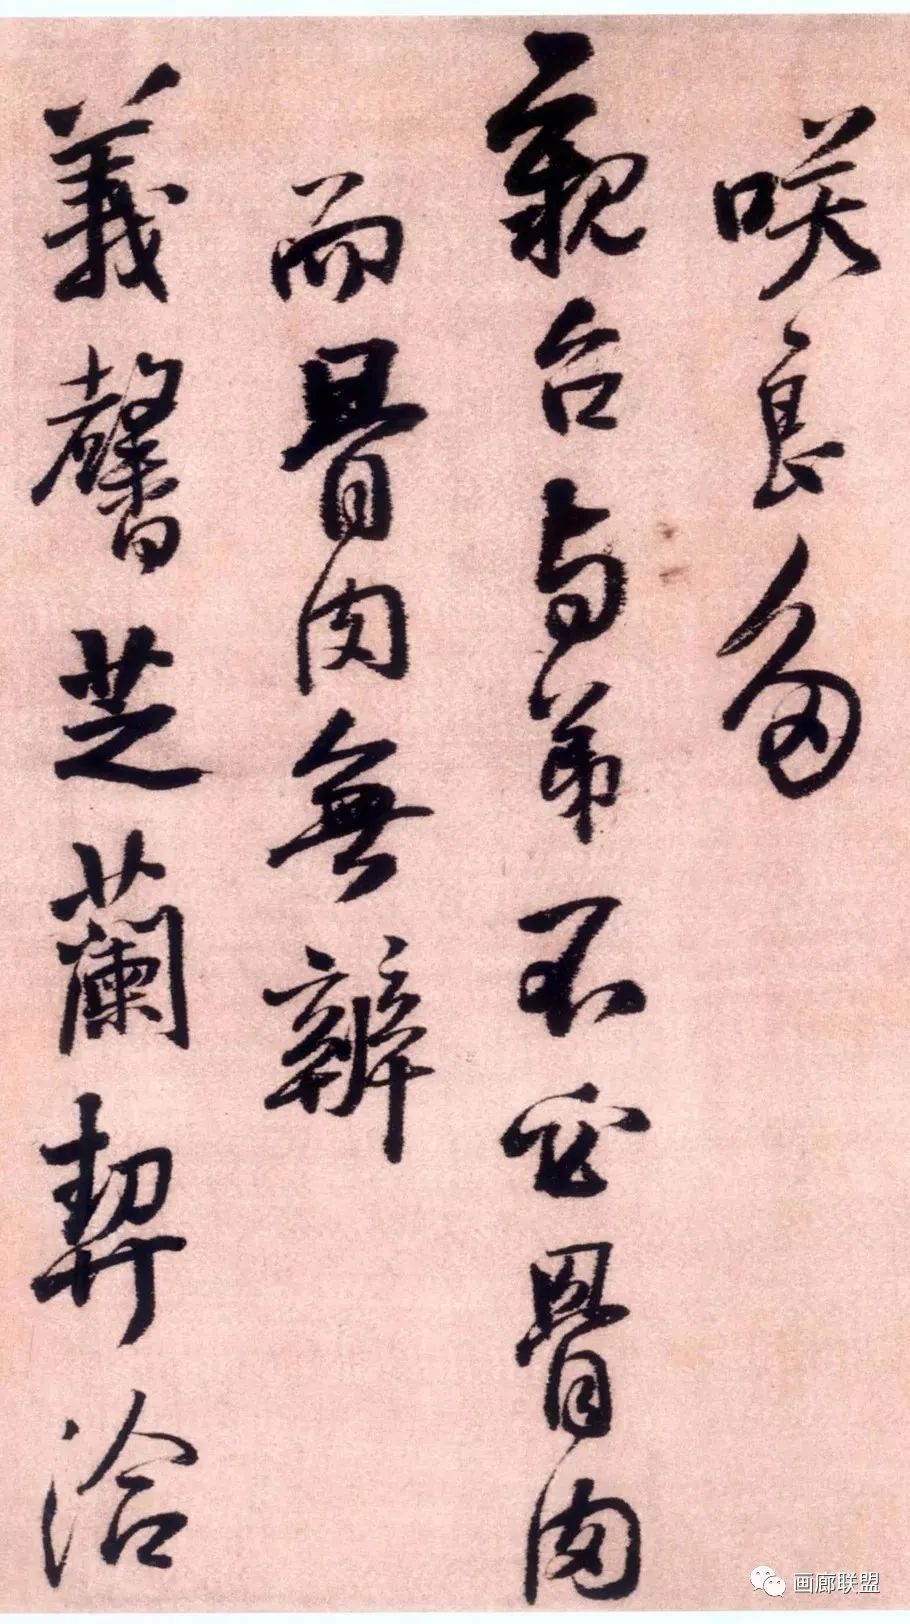 咲良多
親台与弟不啻骨肉
而骨肉無辨
義馨芝蘭契洽
画廊联盟